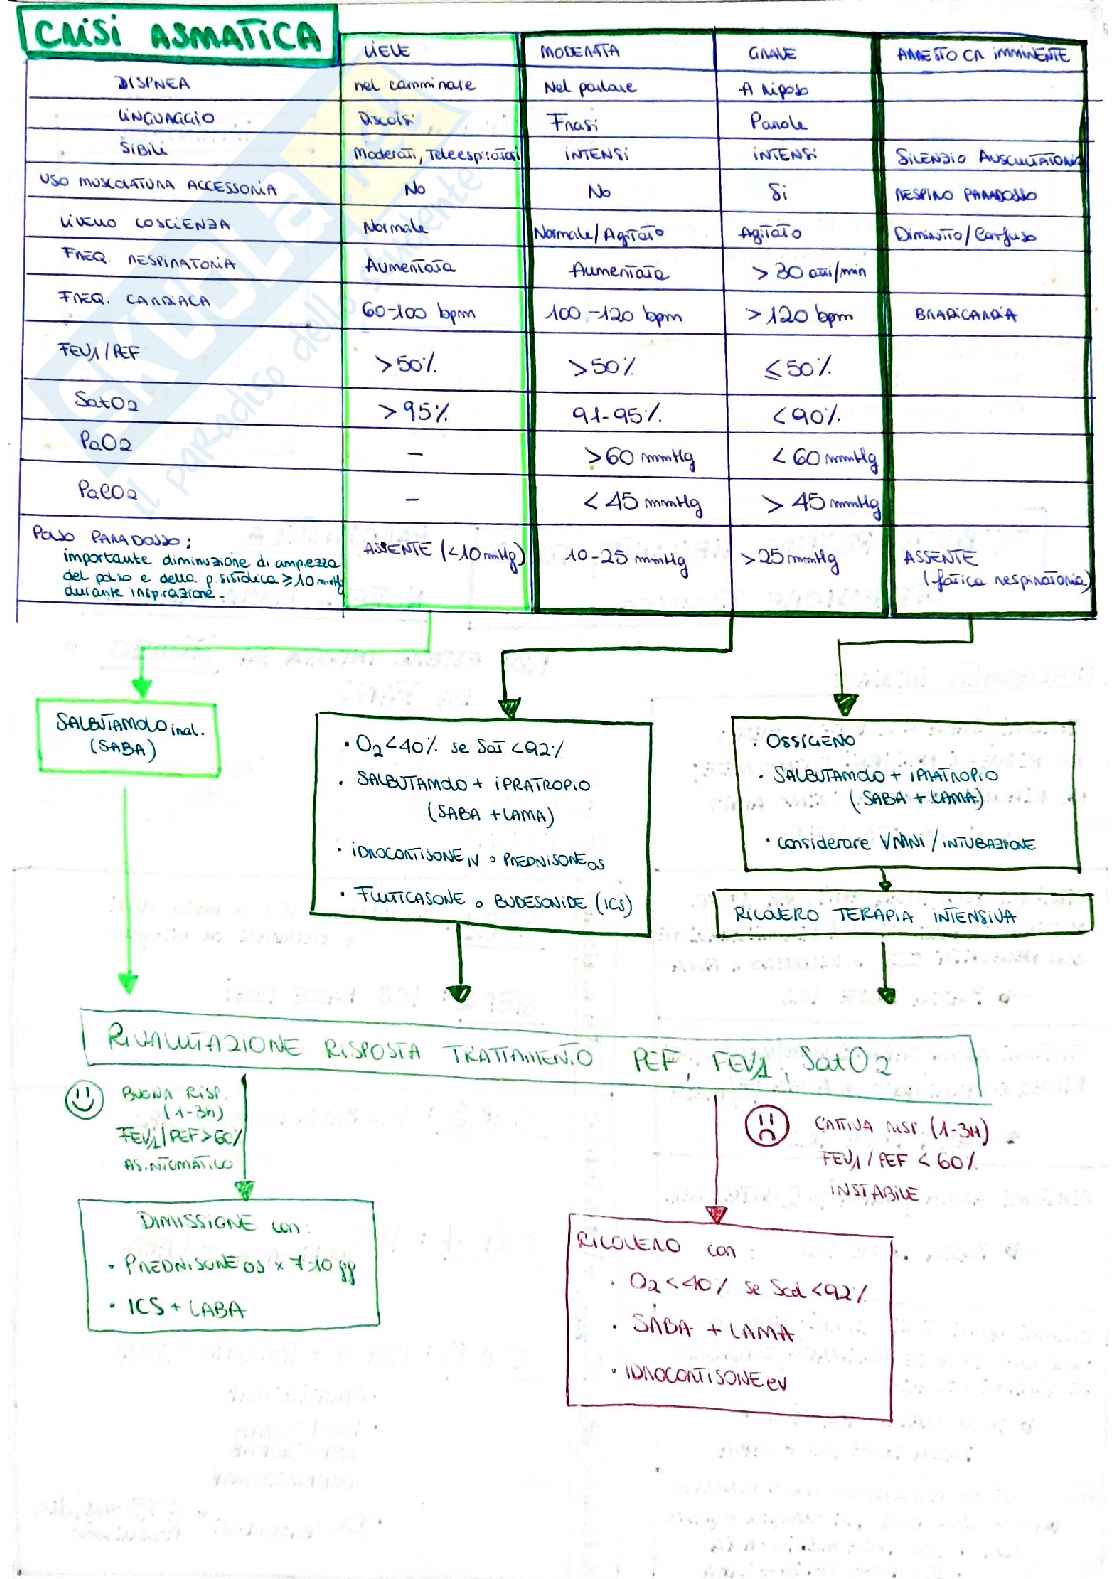 CRISI ASMATICA
LIEVE MODERATA GRAVE ARRESTO CR IMMINENTE
DISPNEA nel camminare Nel parlare A riposo
LINGUAGGIO Discorsi Frasi Parole
SIBILI Moderati, Teleespiratori INTENSI INTENSI SILENZIO AUSCULTATORIO
USO MUSCOLATURA ACCESSORIA No No Si RESPIRO PARADOSSO
LIVELLO COSCIENZA Normale Normale/Agitato Agitato Diminuito/Confuso
FREQ. RESPIRATORIA Aumentata Aumentata >30 atti/min
FREQ. CARDIACA 60-100 bpm 100-120 bpm >120 bpm BRADICARDIA
FEV1/PEF >50% >50% ≤50%
SatO2 >95% 91-95% <90%
PaO2 - >60 mmHg <60 mmHg
PaCO2 - <45 mmHg >45 mmHg
POLSO PARADOSSO: ASSENTE (<10 mmHg) 10-25 mmHg >25 mmHg ASSENTE
importante diminuzione di ampiezza (fatica respiratoria)
del polso e della p. sistolica ≥10 mmHg
durante inspirazione.
SALBUTAMOLO inal.
(SABA)
· O2 <40% se Sat <92%
· SALBUTAMOLO + IPRATROPIO
(SABA + LAMA)
· IDROCORTISONE IV o PREDNISONE OS
· FLUTICASONE o BUDESONIDE (ICS)
· OSSIGENO
· SALBUTAMOLO + IPRATROPIO
(SABA + LAMA)
· considerare VMNI / INTUBAZIONE
RICOVERO TERAPIA INTENSIVA
RIVALUTAZIONE RISPOSTA TRATTAMENTO PEF, FEV1, SatO2
BUONA RISP.
(1-3h)
FEV1/PEF >60%
ASINTOMATICO
CATTIVA RISP. (1-3H)
FEV1/PEF <60%
INSTABILE
DIMISSIONE con:
· PREDNISONE OS x 7-10 gg
· ICS + LABA
RICOVERO con:
· O2 <40% se Sat <92%
· SABA + LAMA
· IDROCORTISONE ev